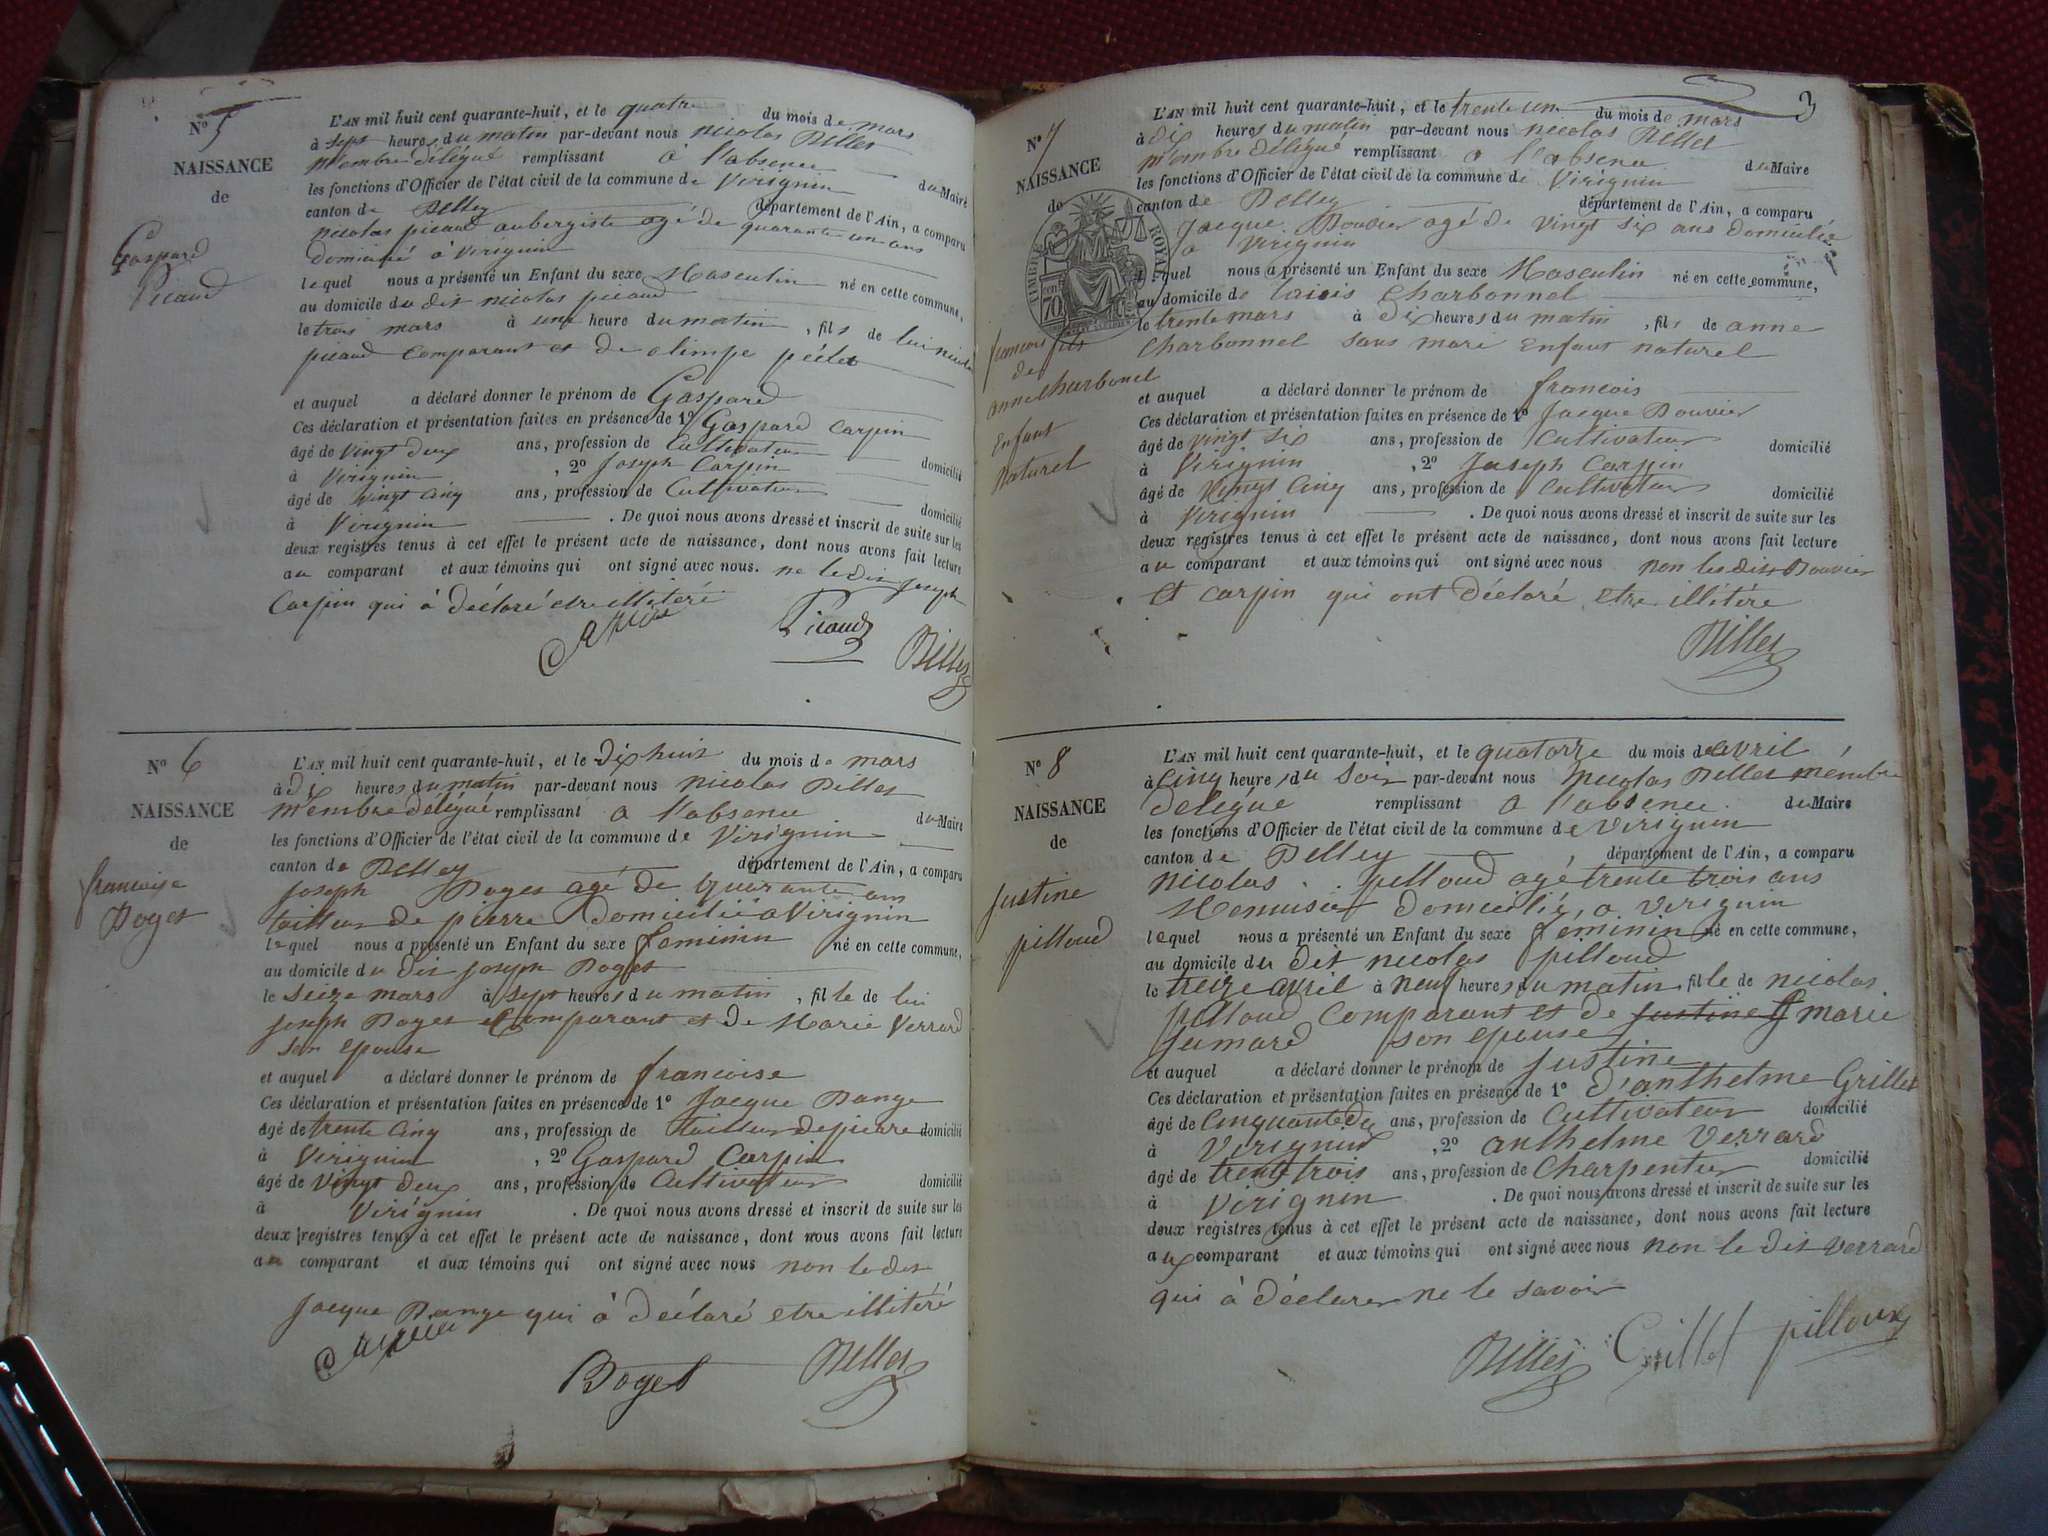 N° 5
NAISSANCE
de
Gaspard
Picaud
L'AN mil huit cent quarante-huit, et le quatre du mois de mars
à sept heures du matin par-devant nous nicolas Billet
membre délégué remplissant à l'absence du Maire
les fonctions d'Officier de l'état civil de la commune de Virignin
canton de Belley département de l'Ain, a comparu
nicolas picaud aubergiste agé de quarante un ans
domicilié à Virignin
lequel nous a présenté un Enfant du sexe Masculin né en cette commune,
au domicile du dit nicolas picaud
le trois mars à une heure du matin, fils de lui nicolas
picaud comparant et de olimpe
et auquel a déclaré donner le prénom de Gaspard
Ces déclaration et présentation faites en présence de 1° Gaspard Carpin
âgé de vingt deux ans, profession de Cultivateur domicilié
à Virignin, 2° Joseph Carpin
âgé de vingt cinq ans, profession de Cultivateur domicilié
à Virignin. De quoi nous avons dressé et inscrit de suite sur les
deux registres tenus à cet effet le présent acte de naissance, dont nous avons fait lecture
au comparant et aux témoins qui ont signé avec nous. ne le dit Joseph
Carpin qui à déclaré etre illitéré
Carpin Picaud Billet
N° 6
NAISSANCE
de
francoise
Boget
L'AN mil huit cent quarante-huit, et le dix huit du mois de mars
à dix heures du matin par-devant nous nicolas Billet
membre délégué remplissant a l'absence du Maire
les fonctions d'Officier de l'état civil de la commune de Virignin
canton de Belley département de l'Ain, a comparu
Joseph Boget agé de quarante ans
tailleur de pierre domicilié a Virignin
lequel nous a présenté un Enfant du sexe feminin né en cette commune,
au domicile du dit joseph Boget
le seize mars à sept heures du matin, fille de lui
joseph Boget comparant et de Marie Verrard
son epouse
et auquel a déclaré donner le prénom de francoise
Ces déclaration et présentation faites en présence de 1° Jacque Bange
âgé de trente cinq ans, profession de tailleur de pierre domicilié
à Virignin, 2° Gaspard Carpin
âgé de vingt deux ans, profession de Cultivateur domicilié
à Virignin. De quoi nous avons dressé et inscrit de suite sur les
deux registres tenus à cet effet le présent acte de naissance, dont nous avons fait lecture
au comparant et aux témoins qui ont signé avec nous non le dit
Jacque Bange qui à déclaré etre illitéré
Carpin Boget Billet
3
N° 7
NAISSANCE
de
TIMBRE ROYAL
70
francois fils
de
anne charbonel
Enfant
naturel
L'AN mil huit cent quarante-huit, et le trente un du mois de mars
à dix heures du matin par-devant nous nicolas Billet
membre délégué remplissant a l'absence du Maire
les fonctions d'Officier de l'état civil de la commune de Virignin
canton de Belley département de l'Ain, a comparu
Jacque Bouvier agé de vingt six ans domicilié
a Virignin
lequel nous a présenté un Enfant du sexe Masculin né en cette commune,
au domicile de Charbonnel
le trente mars à dix heures du matin, fils de anne
Charbonnel sans mari enfant naturel
et auquel a déclaré donner le prénom de francois
Ces déclaration et présentation faites en présence de 1° Jacque Bouvier
âgé de vingt six ans, profession de Cultivateur domicilié
à Virignin, 2° Joseph Carpin
âgé de vingt cinq ans, profession de Cultivateur domicilié
à Virignin. De quoi nous avons dressé et inscrit de suite sur les
deux registres tenus à cet effet le présent acte de naissance, dont nous avons fait lecture
au comparant et aux témoins qui ont signé avec nous non les dits Bouvier
et carpin qui ont déclaré etre illitére
Billet
N° 8
NAISSANCE
de
Justine
pilloud
L'AN mil huit cent quarante-huit, et le quatorze du mois de avril
à cinq heures du soir par-devant nous nicolas Billet membre
délégué remplissant a l'absence du Maire
les fonctions d'Officier de l'état civil de la commune de Virignin
canton de Belley département de l'Ain, a comparu
nicolas pilloud agé trente trois ans
Menuisier domicilié, a Virignin
lequel nous a présenté un Enfant du sexe feminin né en cette commune,
au domicile du dit nicolas pilloud
le treize avril à neuf heures du matin, fille de nicolas
pilloud comparant et de justine marie
jumard son epouse
et auquel a déclaré donner le prénom de justine
Ces déclaration et présentation faites en présence de 1° d'anthelme Grillet
âgé de cinquante ans, profession de Cultivateur domicilié
à Virignin, 2° anthelme Verrard
âgé de trente trois ans, profession de Charpentier domicilié
à Virignin. De quoi nous avons dressé et inscrit de suite sur les
deux registres tenus à cet effet le présent acte de naissance, dont nous avons fait lecture
aux comparant et aux témoins qui ont signé avec nous non le dit Verrard
qui à déclarer ne le savoir
Billet Grillet pilloux